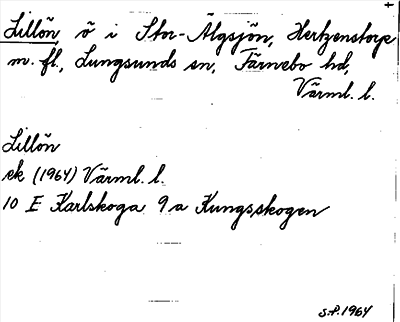 Lillön, ö i Stor-Älgsjön, Hertzenstorp
m. fl., Lungsunds sn, Färnebo hd,
Värml. l.
Lillön
ek (1964) Värml. l.
10 E Karlskoga 9a Kungsskogen
S.P. 1964